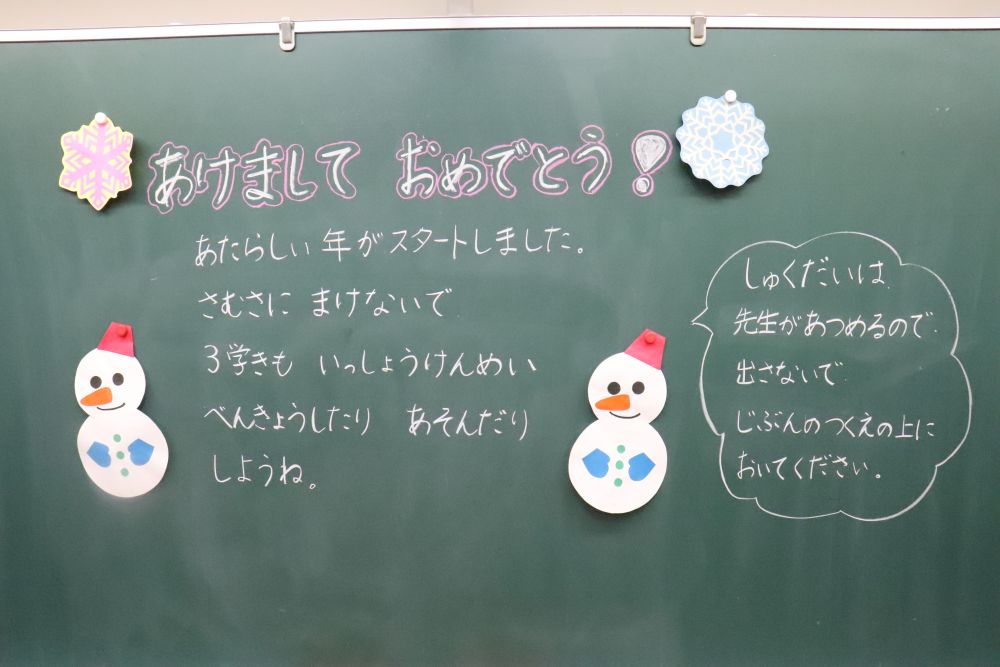 あけまして おめでとう!
あたらしい 年が スタートしました。
さむさに まけないで
3学きも いっしょうけんめい
べんきょうしたり あそんだり
しようね。
しゅくだいは、
先生があつめるので、
出さないで
じぶんのつくえの上に
おいてください。